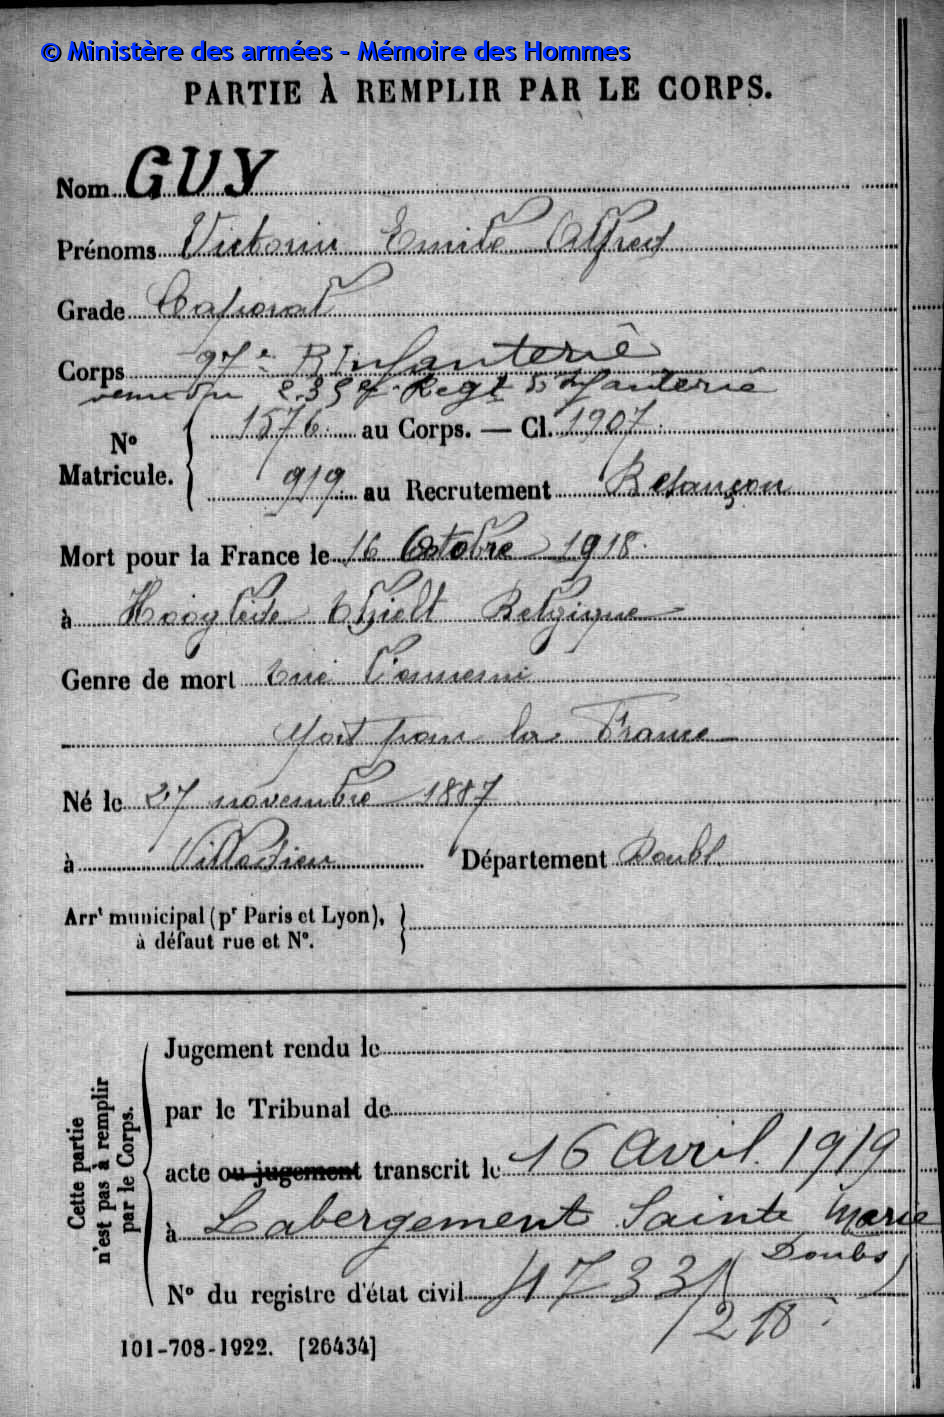 © Ministère des armées - Mémoire des Hommes
PARTIE À REMPLIR PAR LE CORPS.
Nom GUY
Prénoms Victorin Emile Alfred
Grade Caporal
Corps 97e R Infanterie
venu du 235e Regt d'Infanterie
N° Matricule. { 1576 au Corps. — Cl. 1907
919 au Recrutement Besançon
Mort pour la France le 16 Octobre 1918
à Hooglede Thielt Belgique
Genre de mort Tué l'ennemi
Mort pour la France
Né le 27 novembre 1887
à Villedieu Département Doubs
Arrt municipal (pr Paris et Lyon),
à défaut rue et N°.
Cette partie n'est pas à remplir par le Corps.
Jugement rendu le
par le Tribunal de
acte ou jugement transcrit le 16 Avril 1919
à Labergement Sainte Marie
(Doubs)
N° du registre d'état civil 4733
/218
101-708-1922. [26434]